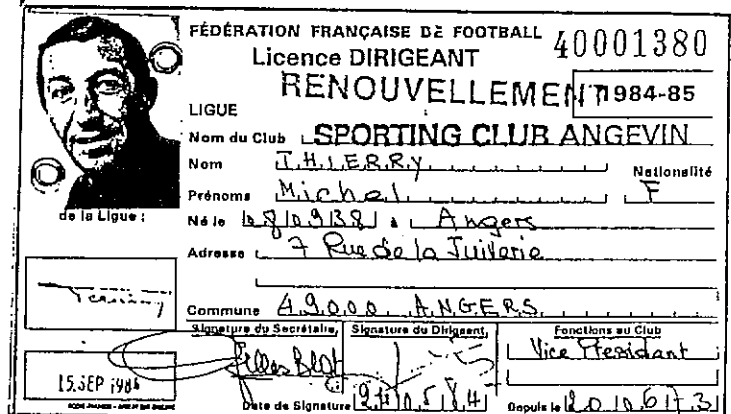 FÉDÉRATION FRANÇAISE DE FOOTBALL 40001380
Licence DIRIGEANT
RENOUVELLEMENT 1984-85
LIGUE
Nom du Club SPORTING CLUB ANGEVIN
Nom THIERRY Nationalité
Prénoms Michel F
de la Ligue :
Né le 080938 à Angers
Adresse 7 Rue de la Juiverie
Commune 49000 ANGERS
Signature du Secrétaire, Signature du Dirigeant, Fonctions au Club
Gilles Blot Vice President
15. SEP 1984
Date de Signature 0584 Depuis le 200673